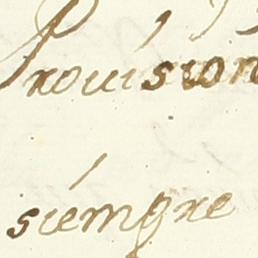 Provision
siempre